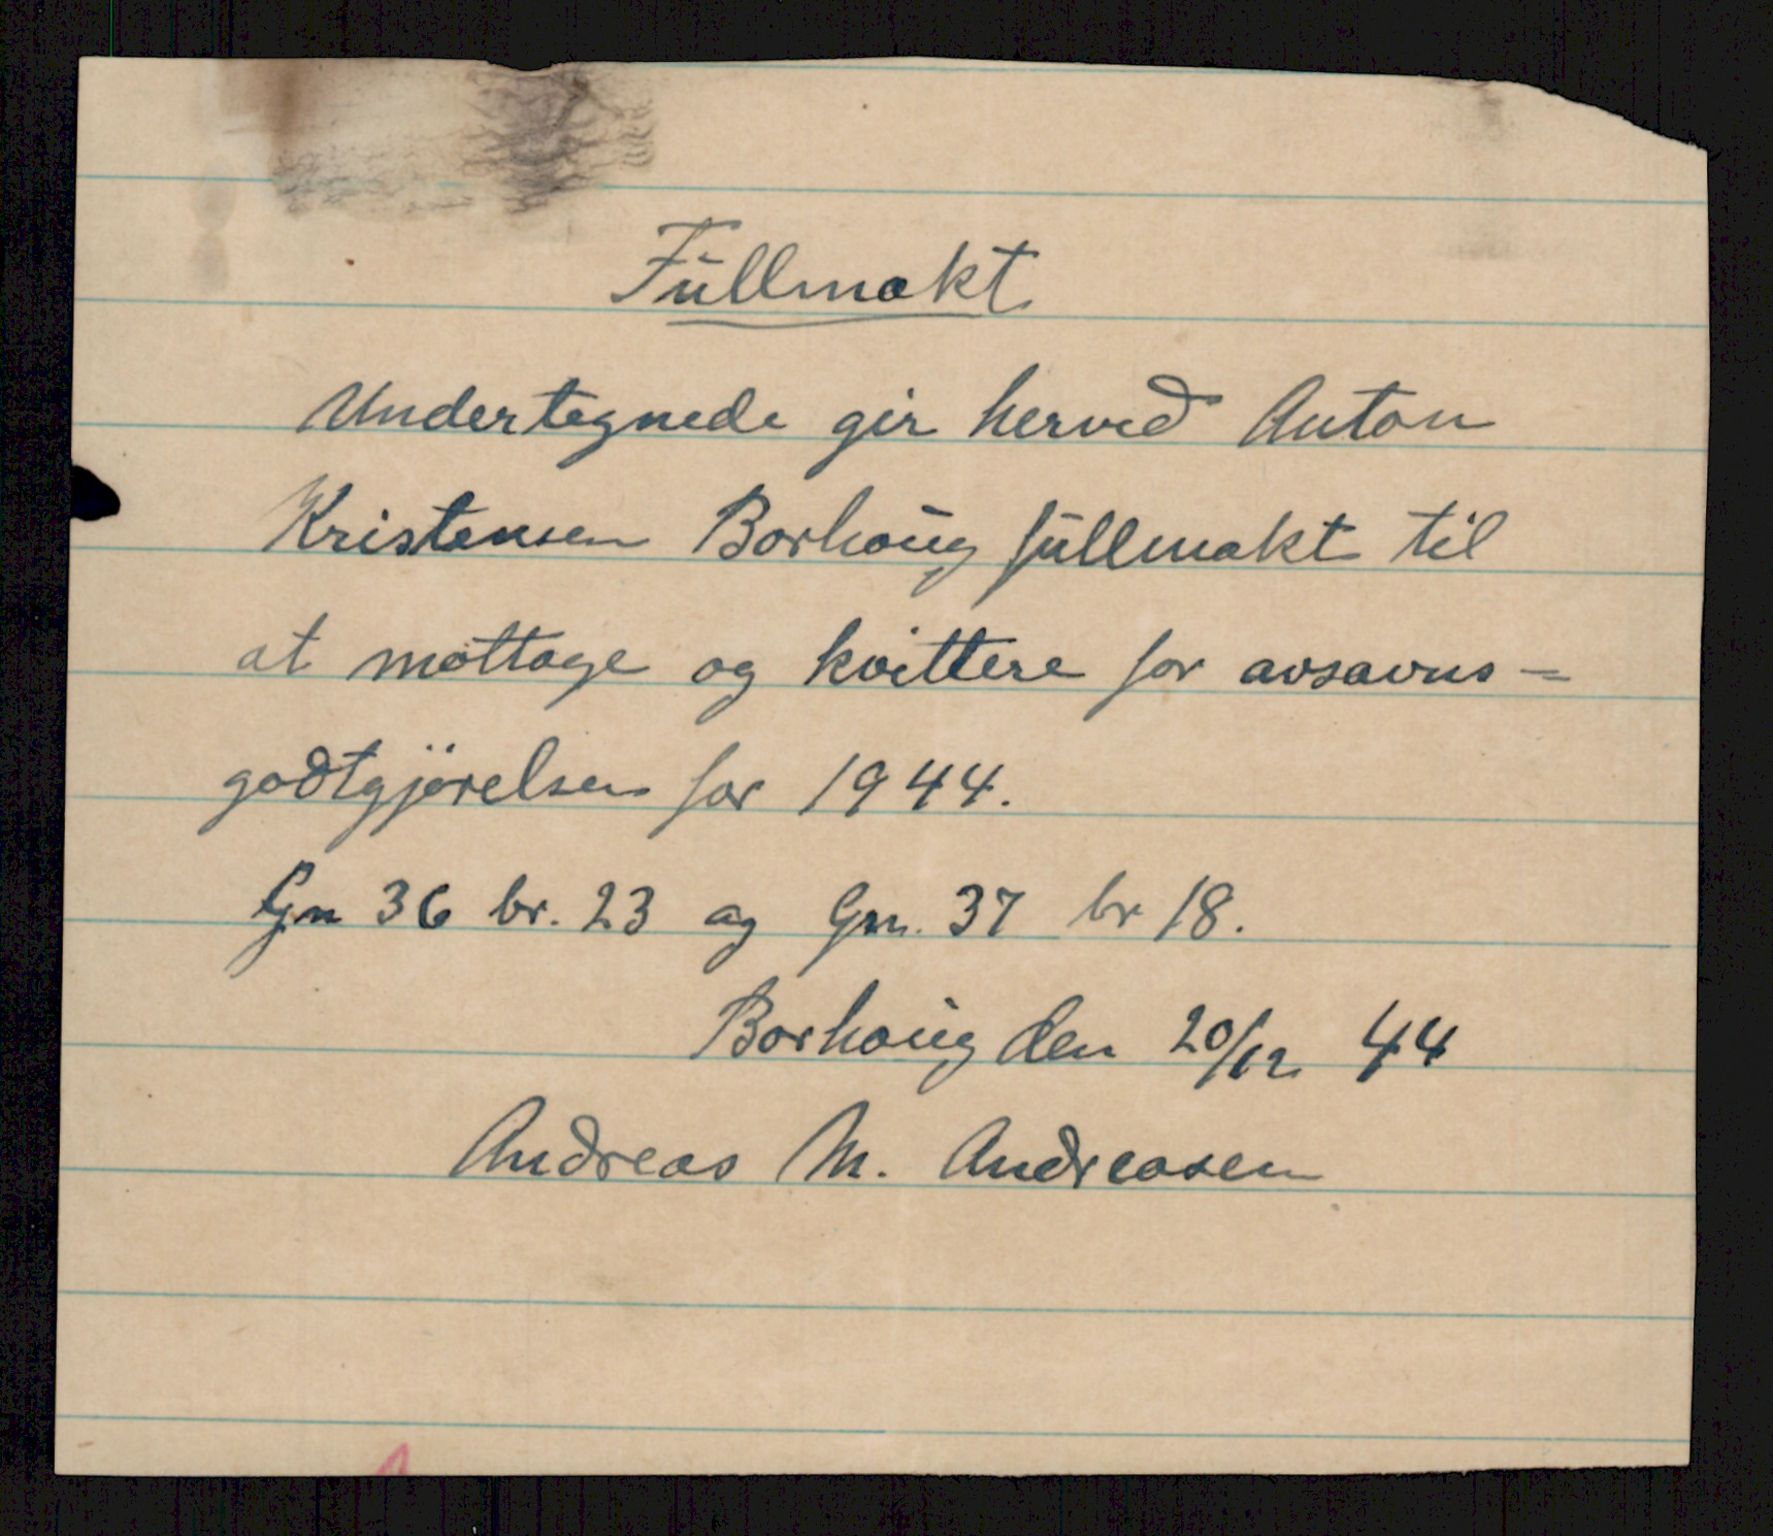 Fullmakt
Undertegnede gir herved Anton
Kristensen Borhaug fullmakt til
at mottage og kvittere for avsavns-
godtgjørelsen for 1944.
Gn 36 br. 23 og Gn. 37 br 18.
Borhaug den 20/12 44
Andreas M. Andreasen